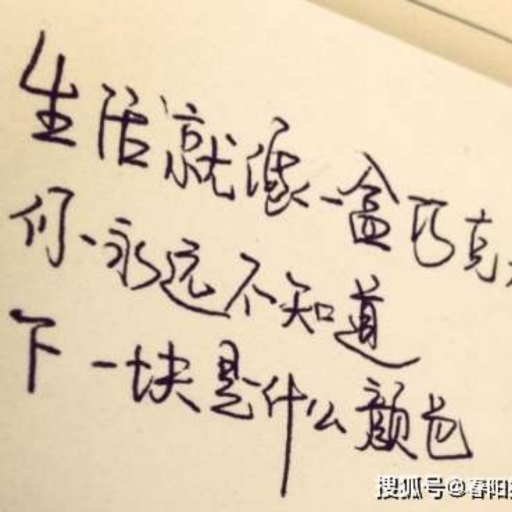 生活就像一盒巧克
你永远不知道
下一块是什么颜色
搜狐号@春阳